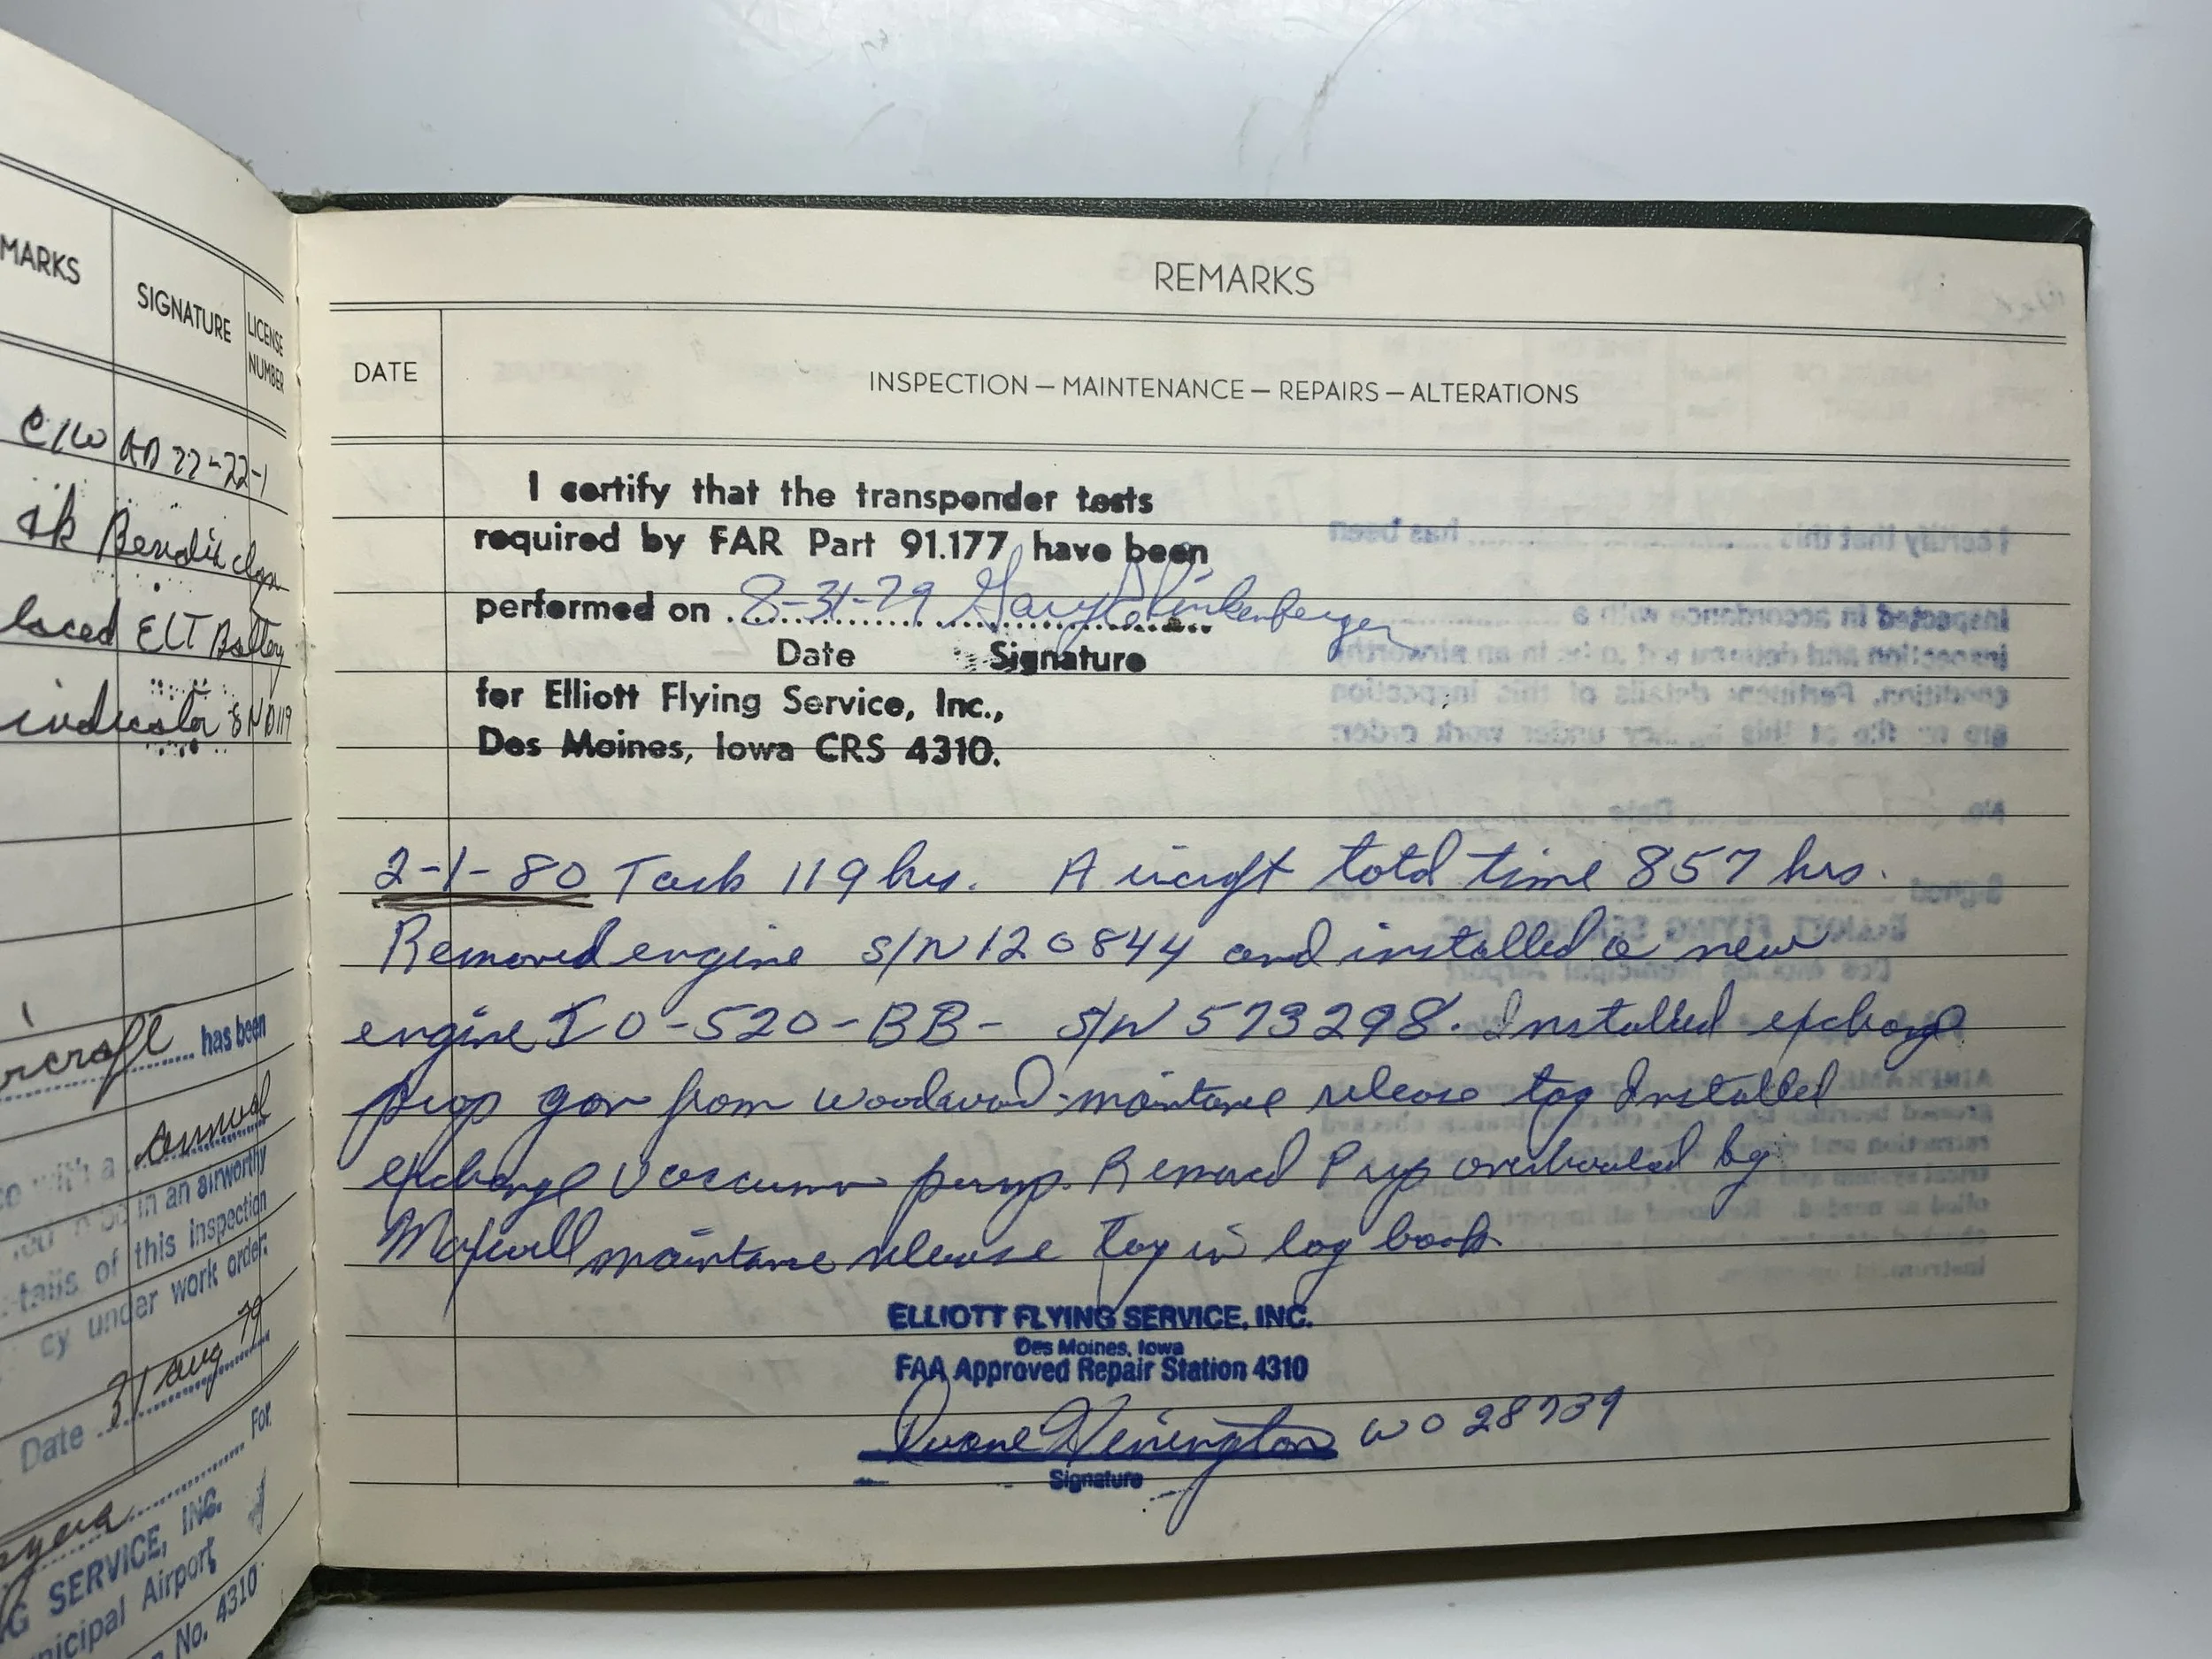 MARKS
SIGNATURE
LICENSE
NUMBER
C/W AD 77-22-1
ck Bendix
laced ELT Battery
indicator S/N D119
ircraft has been
with a annual
in an airworthy
tails of this inspection
cy under work order:
Date 31 Aug 79
For
G SERVICE, INC.
nicipal Airport
No. 4310
REMARKS
DATE
INSPECTION — MAINTENANCE — REPAIRS — ALTERATIONS
I certify that the transponder tests
required by FAR Part 91.177 have been
performed on 8-31-79 Gary
Date Signature
for Elliott Flying Service, Inc.,
Des Moines, Iowa CRS 4310.
2-1-80 Tach 119 hrs. Aircraft total time 857 hrs.
Removed engine S/N 120844 and installed a new
engine IO-520-BB- S/N 573298. Installed exchange
prop gov from Woodward - maintance release tag Installed
exchange vaccum pump. Removed Prop overhauled by
Maxwell maintance release tag in log book
ELLIOTT FLYING SERVICE, INC.
Des Moines, Iowa
FAA Approved Repair Station 4310
Duane WO 28739
Signature